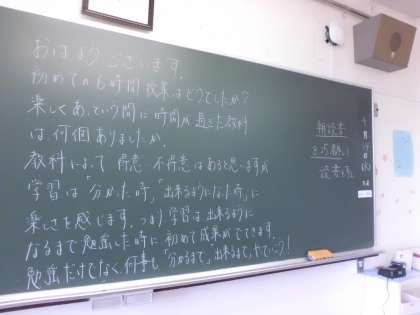 おはようございます。
初めての6時間授業はどうでしたか?
楽しくあっという間に時間が過ぎた教科
は何個ありましたか。
教科によって得意・不得意はあると思いますが
学習は「分かった時」「出来るようになった時」に
楽しさを感じます。つまり学習は出来るように
なるまで勉強した時に初めて成果がでてきます。
勉強だけでなく何事も「分かるまで」「出来るまで」やっていこう!
朝読書
8:15
読書
4月14日